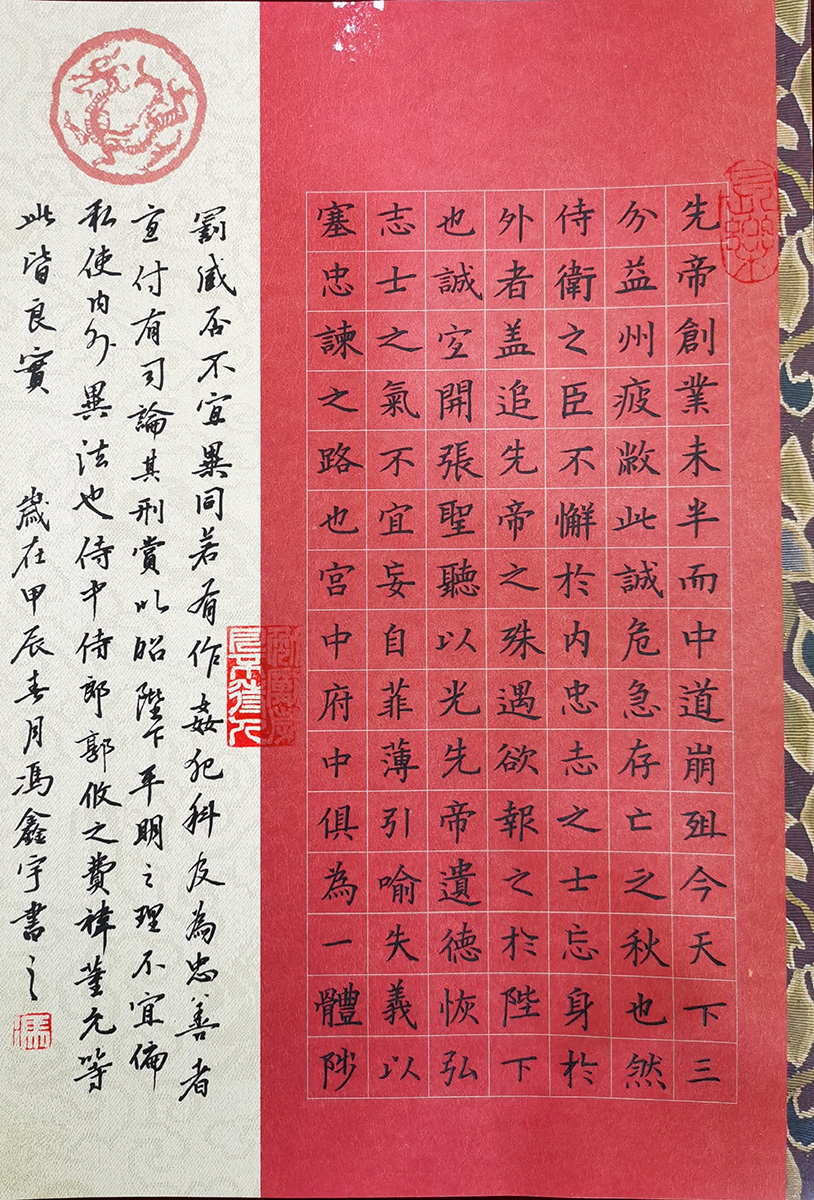 先帝創業未半而中道崩殂今天下三
分益州疲敝此誠危急存亡之秋也然
侍衛之臣不懈於内忠志之士忘身於
外者盖追先帝之殊遇欲報之於陛下
也誠宜開張聖聽以光先帝遺德恢弘
志士之氣不宜妄自菲薄引喻失義以
塞忠諫之路也宫中府中俱為一體陟
罰臧否不宜異同若有作姦犯科及為忠善者
宜付有司論其刑賞以昭陛下平明之理不宜偏
私使内外異法也侍中侍郎郭攸之費禕董允等
此皆良實 歲在甲辰春月馮鑫宇書之
長樂
馮